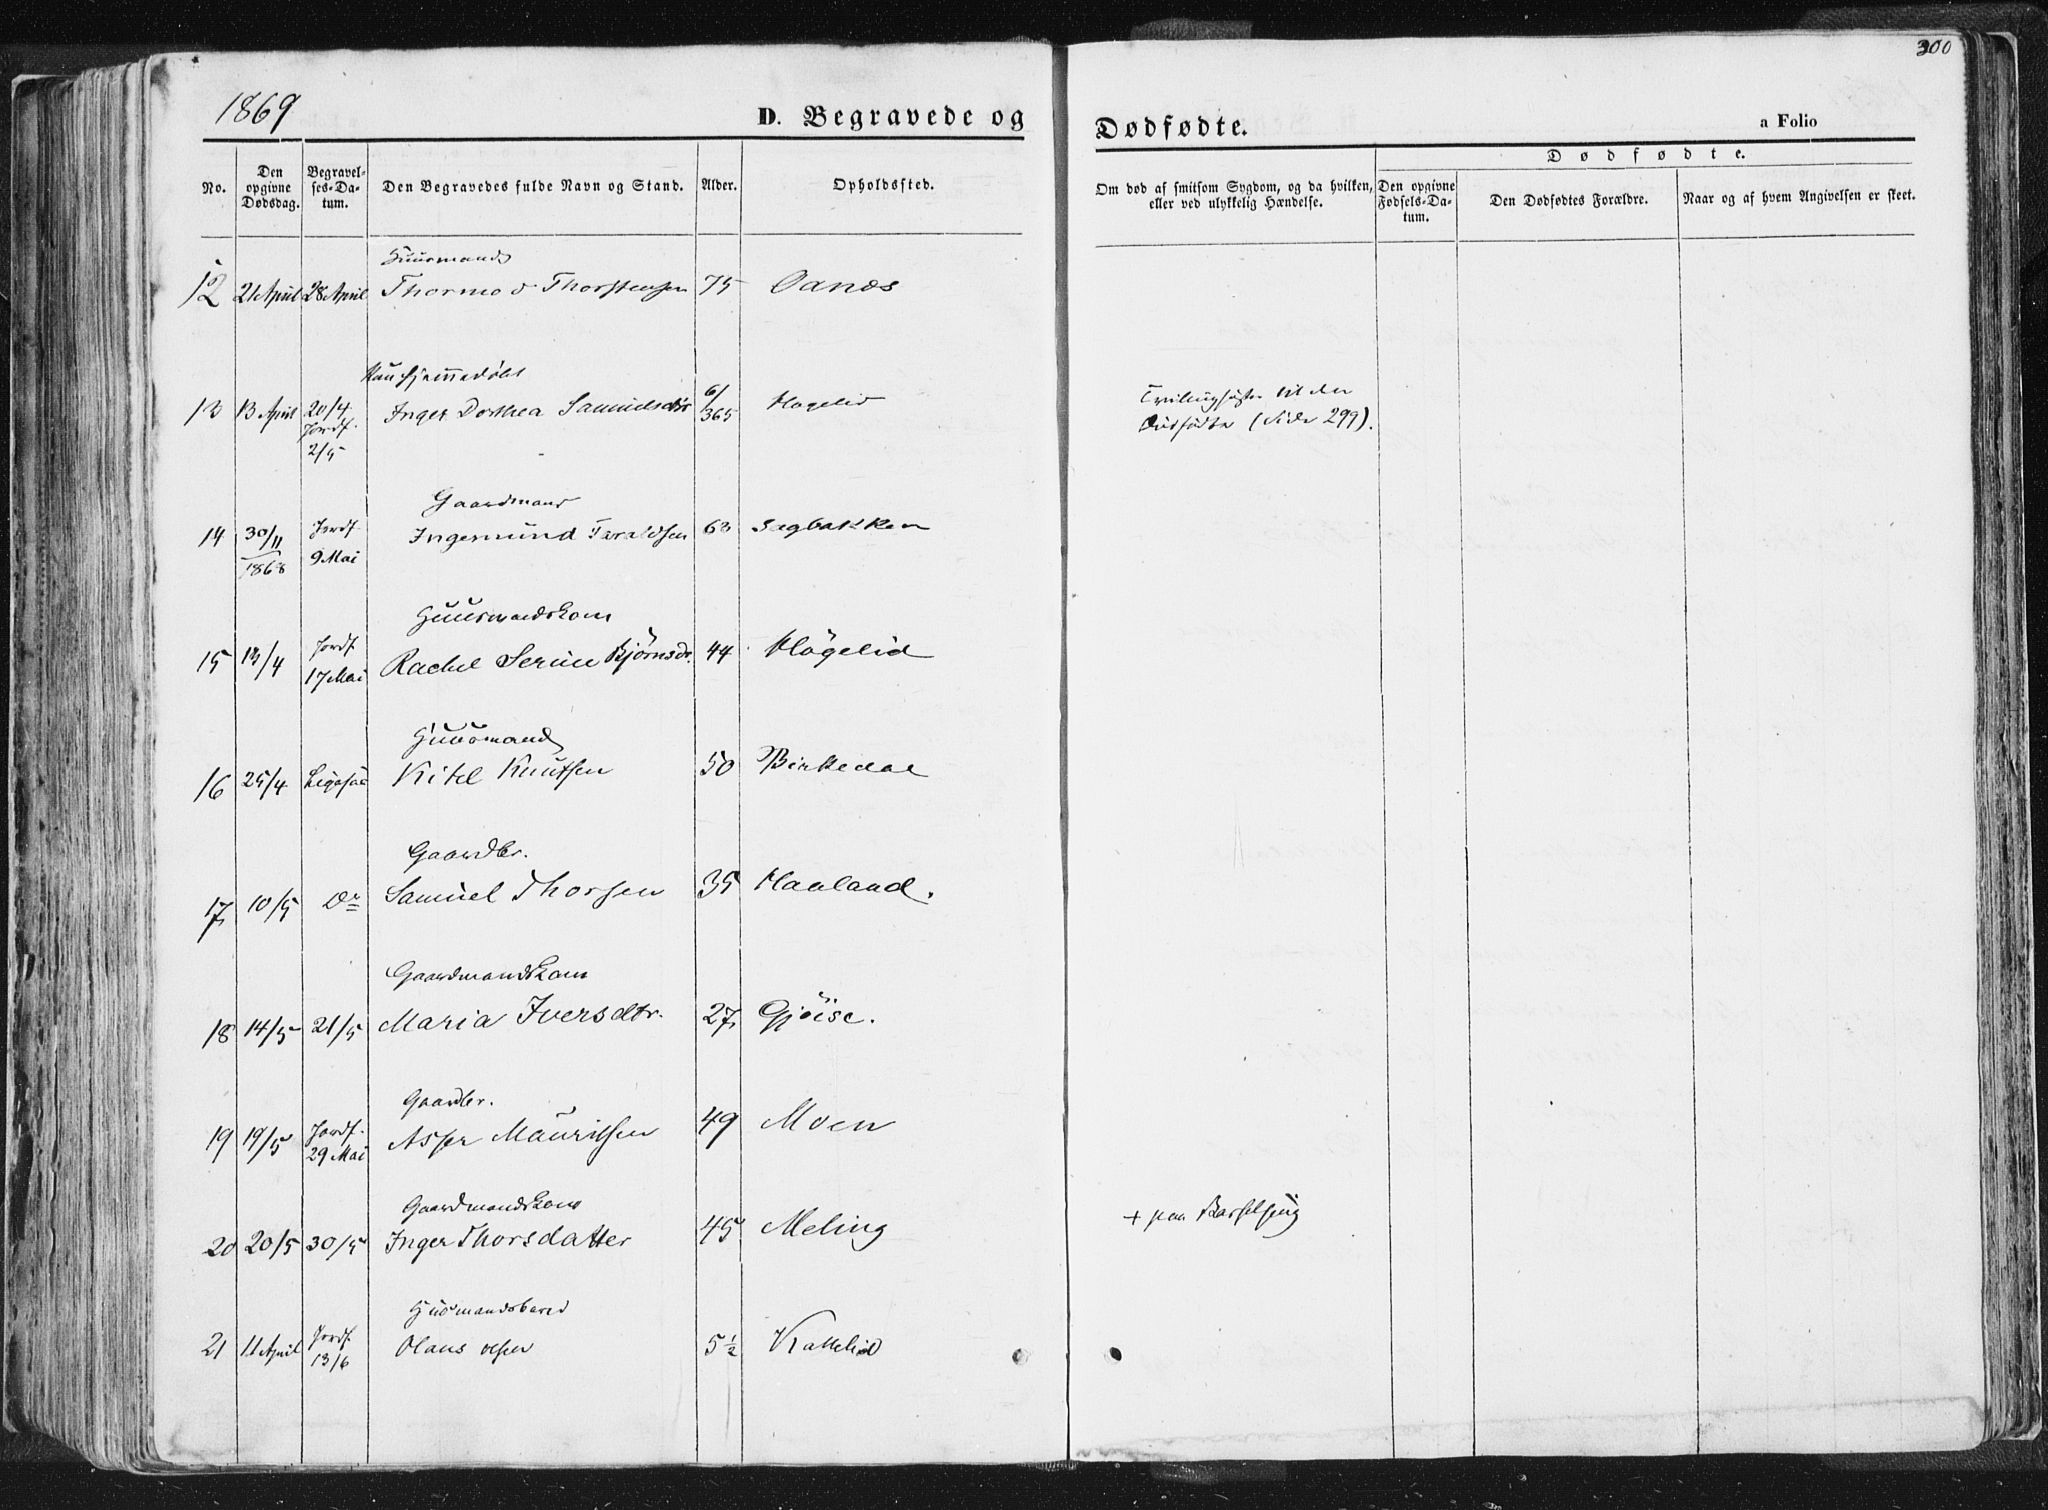 300
1869
D. Begravede og Dødfødte.
a Folio
No.
Den opgivne Dødsdag.
Begravelses-Datum.
Den Begravedes fulde Navn og Stand.
Alder.
Opholdssted.
Om død af smitsom Sygdom, og da hvilken, eller ved ulykkelig Hændelse.
Dødfødte.
Den opgivne Fødsels-Datum.
Den Dødfødtes Forældre.
Naar og af hvem Angivelsen er skeet.
Huusmand
12 21 April 28 April Thormod Thorstensen 75 Oanæs
hjemmedøbt
13 13 April 20/4 Jordf. 2/5 Inger Dorthea Samuelsdtr 6/365 Høgelid
Tvillingsøster til den
Dødfødte (Side 299).
Gaardmand
14 30/11 1868 Jordf. 9 Mai Ingemund Taraldsen 63 Sagbakken
Huusmandskone
15 13/4 Jordf 17 Mai Rachel Serine Bjørnsdr. 44 Høgelid
Huusmand
16 25/4 Ligesaa Kitel Knutsen 50 Birkedal
Gaardbr.
17 10/5 Do Samuel Thorsen 35 Haaland.
Gaardmandskone
18 14/5 21/5 Maria Iversdtr. 27 Gjöise.
Gaardbr.
19 19/5 Jordf. 29 Mai Asser Mauritsen 49 Moen
Gaardmandskone
20 20/5 30/5 Inger Thorsdatter 45 Meling
+ paa Barselseng
Husmandsbarn
21 11 April Jordf. 13/6 Olaus Olsen 5 1/2 Kattelid